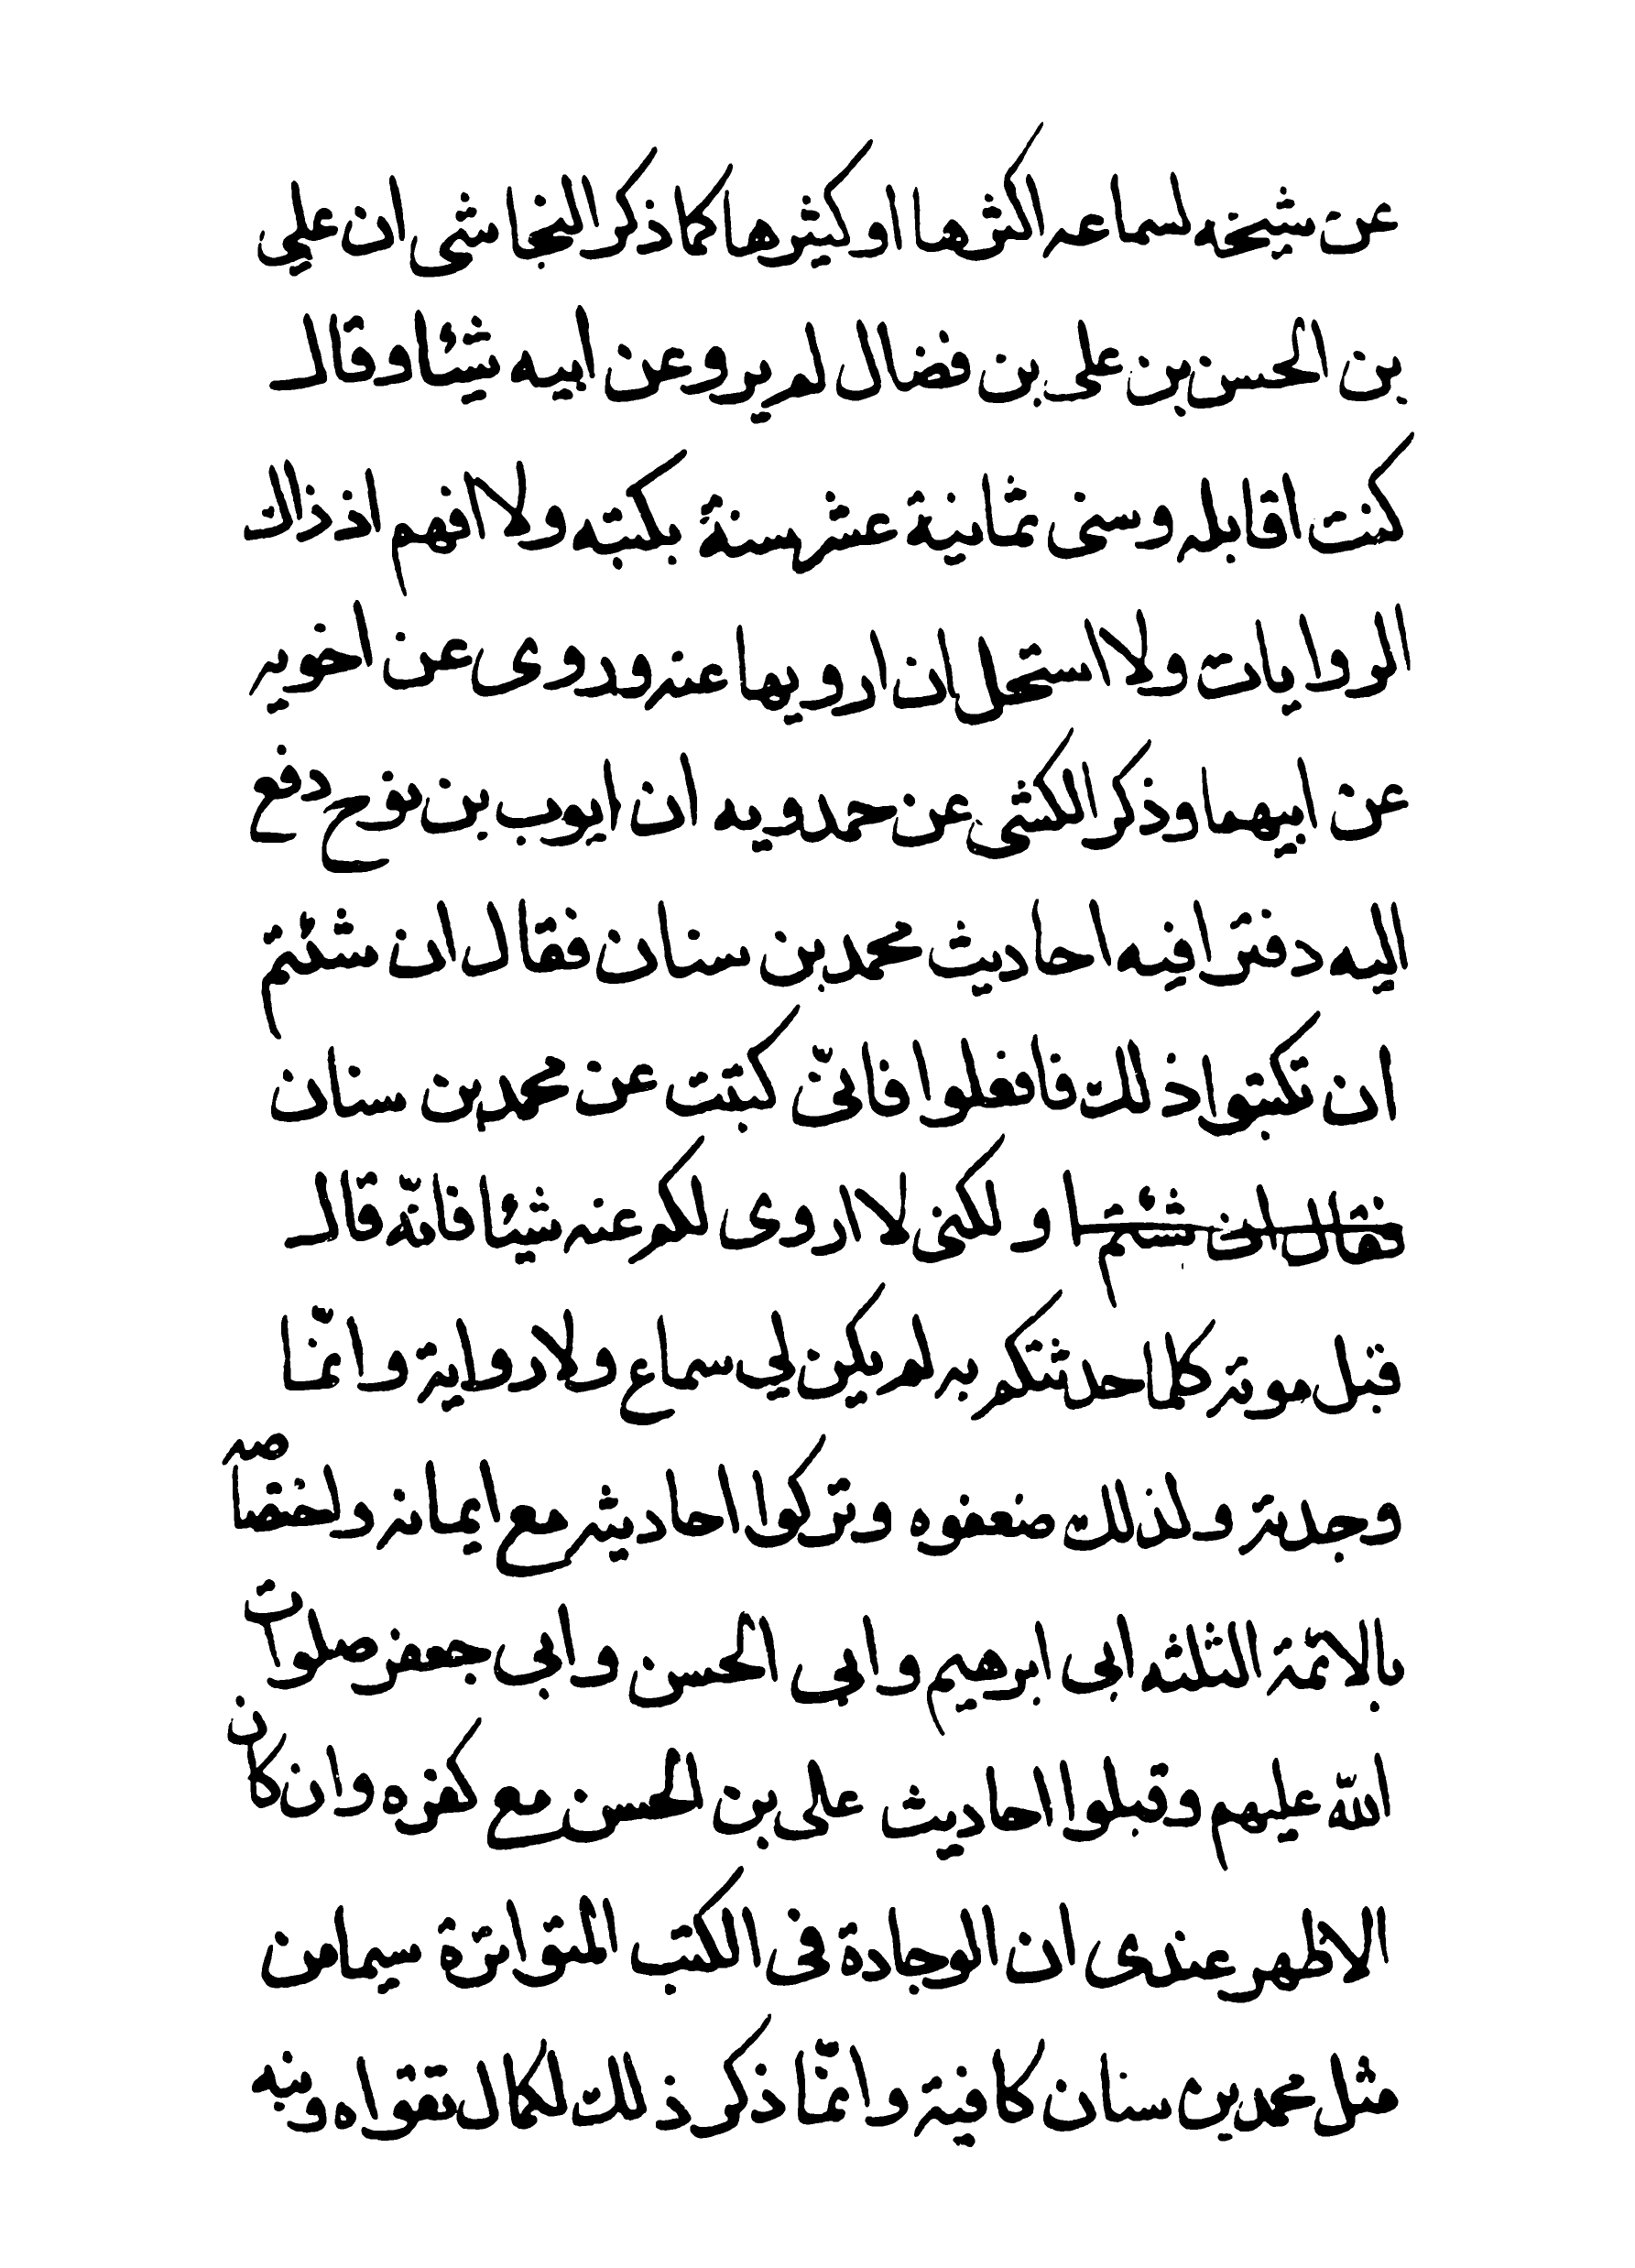 عن شيخه لسماعه اكثرها او كثيرها كما ذكر النجاشى ان علي
بن الحسن بن على بن فضال لم يرو عن ابيه شيئا وقال
كنت اقابله وسنى ثمانية عشر سنة بكتبه ولا افهم اذ ذاك
الروايات ولا استحل ان ارويها عنه وروى عن اخويه
عن ابيهما وذكر الكشى عن حمدويه ان ايوب بن نوح دفع
اليه دفترا فيه احاديث محمد بن سنان فقال ان شئتم
ان تكتبوا ذلك فافعلوا فانىّ كتبت عن محمد بن سنان
فقال ان شئتم ا ولكنى لا اروى لكم عنه شيئا فانّه قال
قبل موته كلما حدثتكم به لم يكن لي سماع ولا رواية وانمّا
وجدته ولذلك ضعفوه وتركوا احاديثه مع ايمانه ولختصاصه
بالائمة الثلثه ابى ابرهيم وابى الحسن وابى جعفر صلوات
الله عليهم وقبلوا احاديث على بن الحسن مع كفره وان كان
الاظهر عندى ان الوجادة فى الكتب المتواترة سيما من
مثل محمد بن سنان كافية وانمّا ذكر ذلك لكمال تقواه ونبه